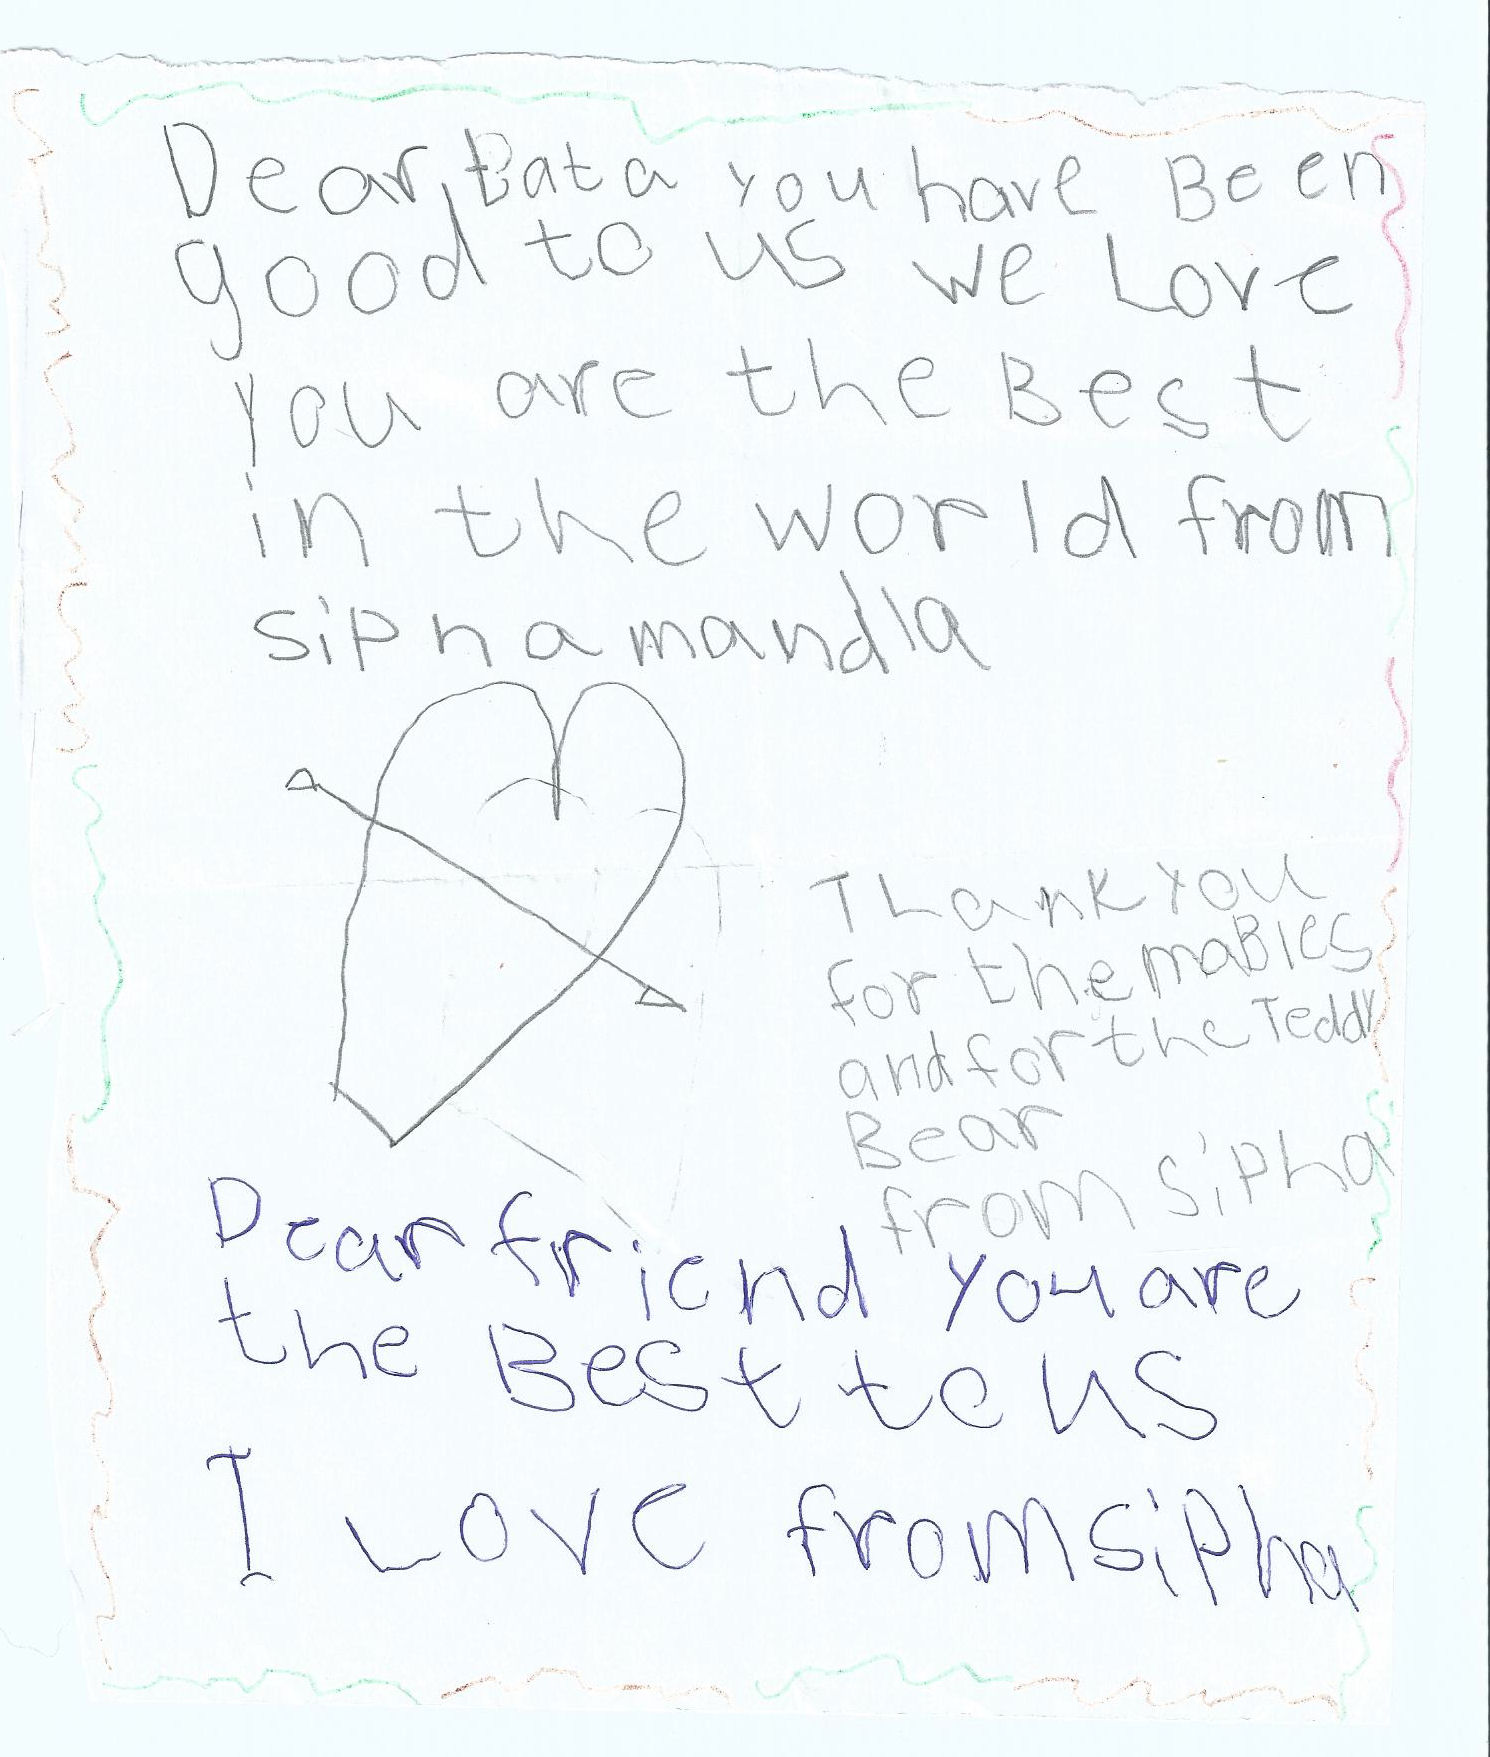 Dear, Bata you have Been
good to us we Love
you are the Best
in the world from
siphamandla
THank you
for the maBles
and for the Teddy
Bear
from sipha
Dear friend you are
the Best to us
I Love from sipha